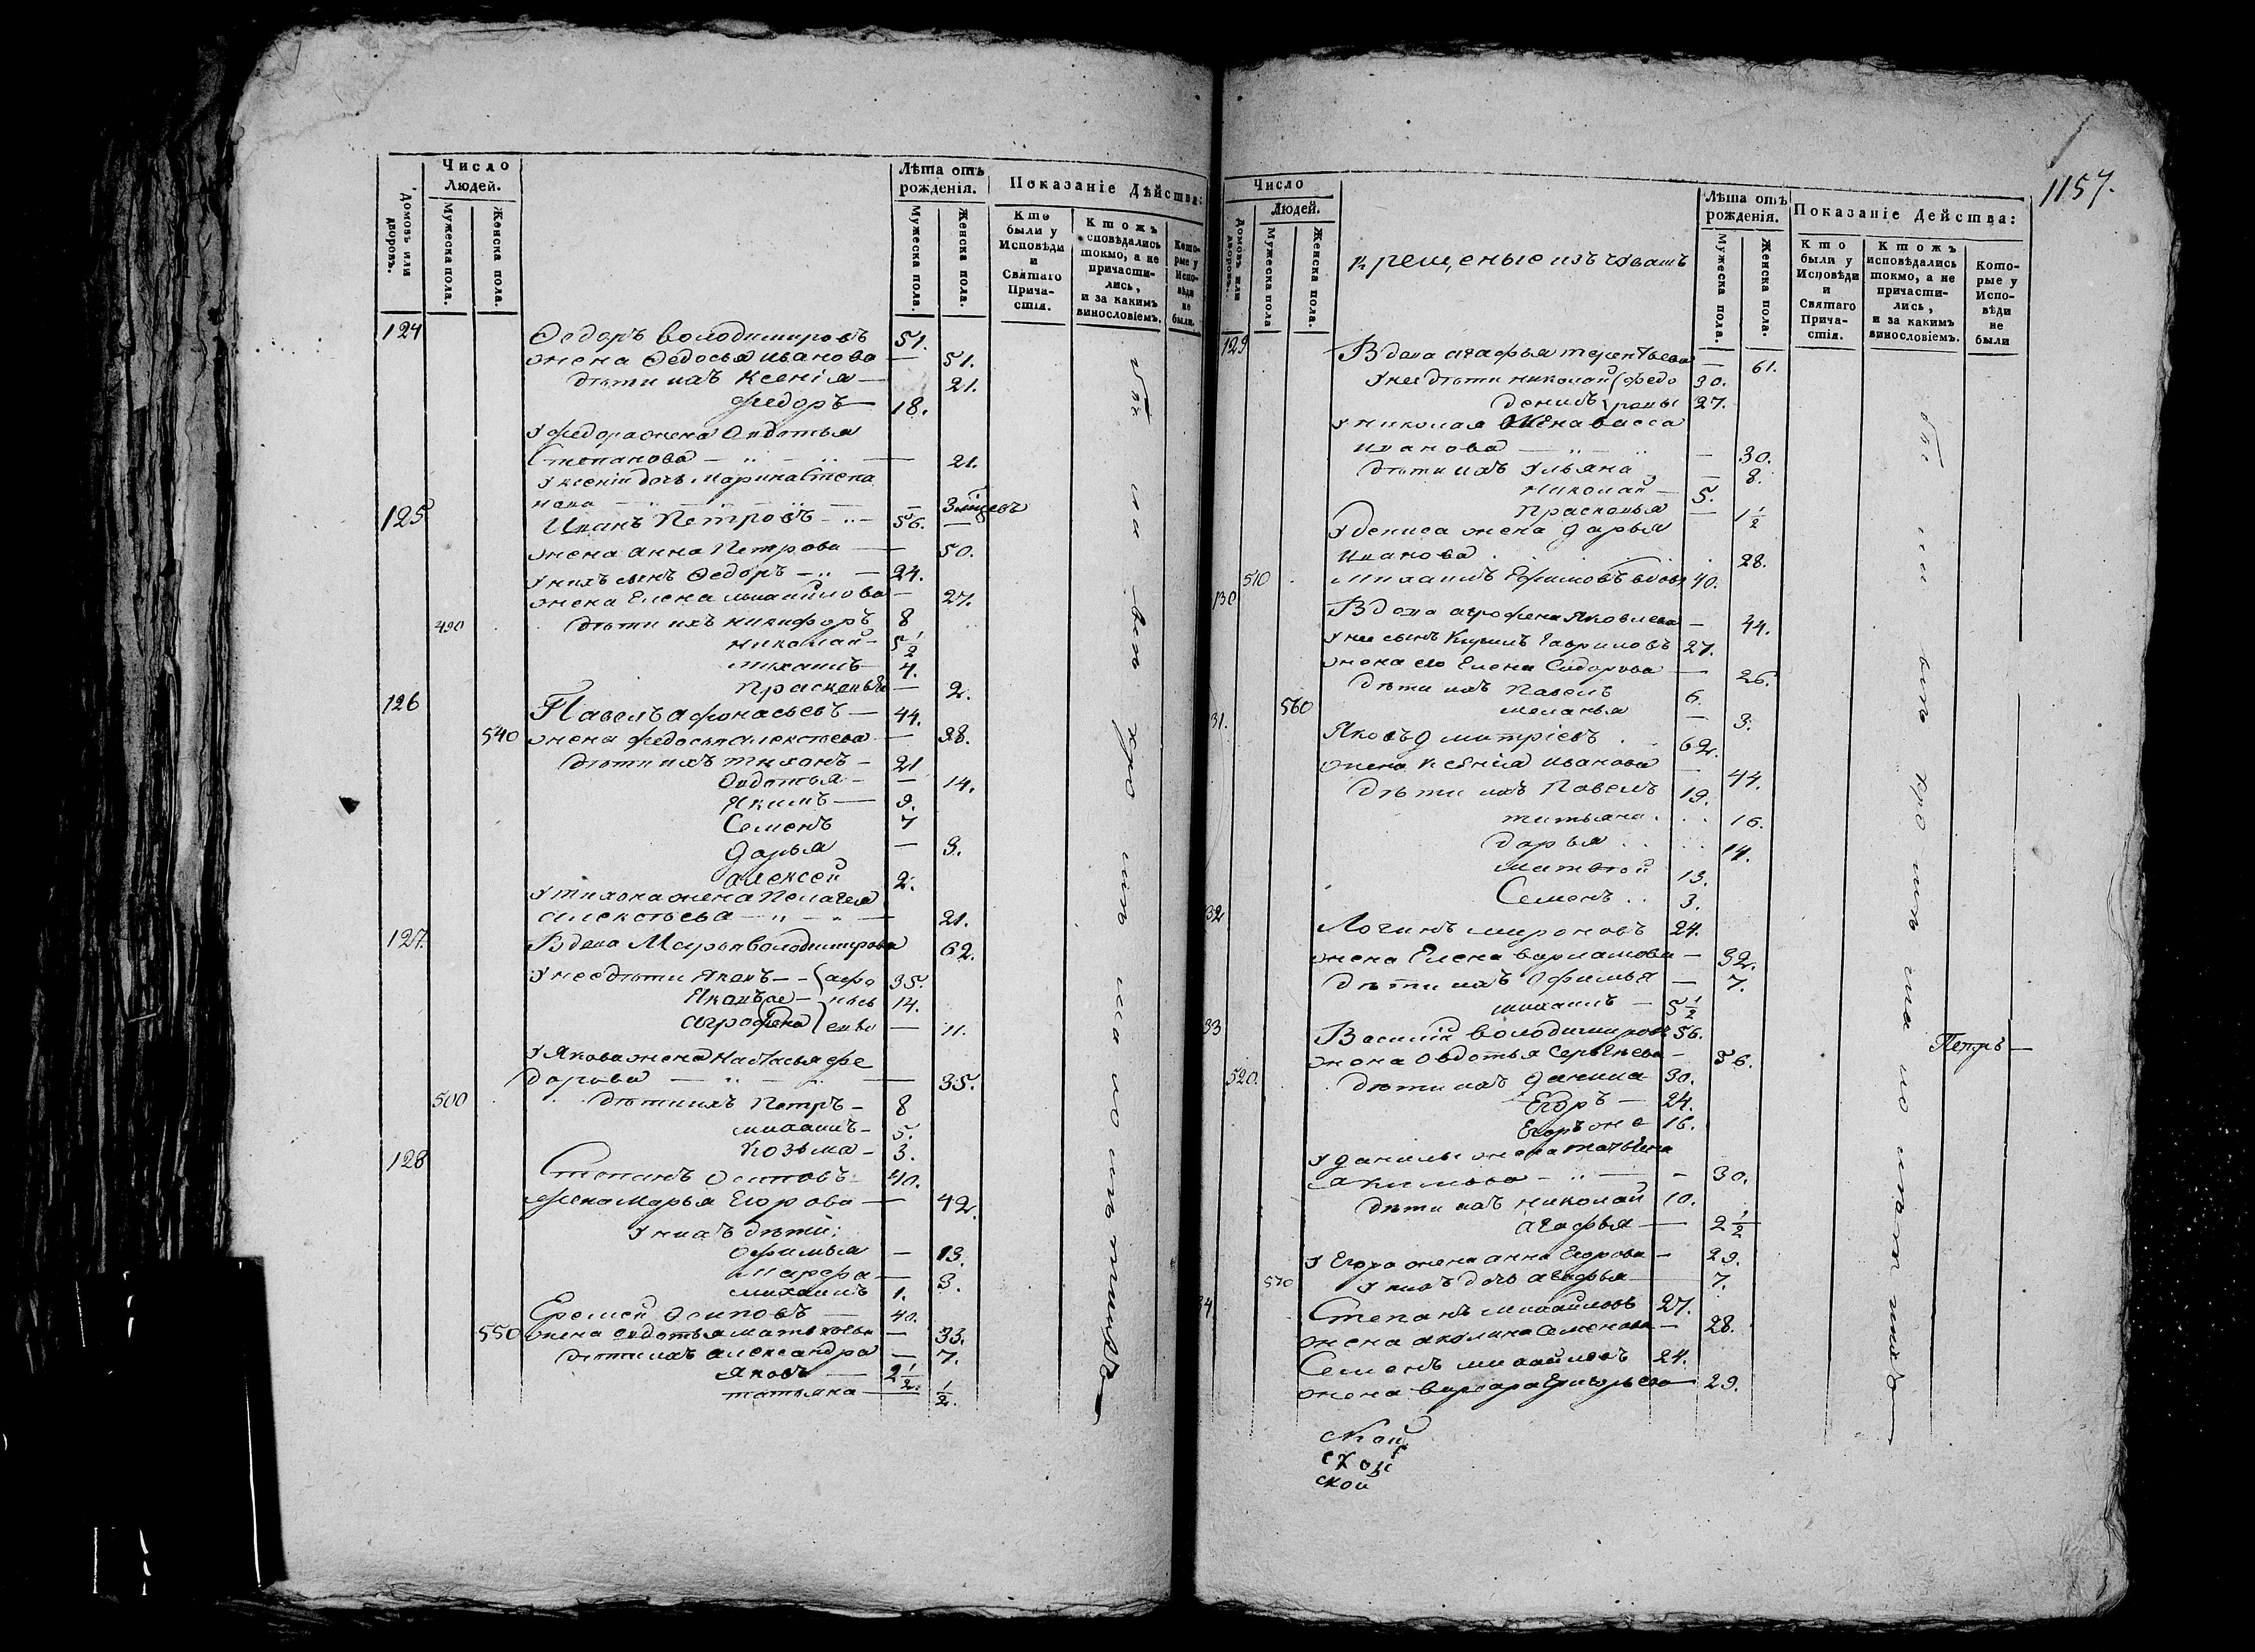 Число
Людей.
Домовъ или дворовъ.
Мужеска пола.
Женска пола.
Лѣта отъ рожденія.
Мужеска пола.
Женска пола.
Показаніе Дѣйства:
Кто были у Исповѣди и Святаго Причастія.
Ктожъ исповѣдались токмо, а не причастились, и за какимъ винословіемъ.
Которые у Исповѣди не были.
124 Ѳедоръ володимировъ 51.
жена Ѳедосья иванова — 51.
дѣти ихъ Ксенія — 21.
федоръ — 18.
У федора жена Овдотья
Степанова — 21.
У ксеніи дочь Марина Степа
нова — 3
125 Иванъ Петровъ — 56. —
жена анна Петрова — 50.
У нихъ сынъ Ѳедоръ — 24.
жена Елена михайлова — 27.
490 дѣти ихъ никифоръ 8
николай — 5 1/2
михаилъ 4.
Прасковья — 2.
126 Павелъ афонасьевъ — 44.
540 жена федосья алексѣева — 38.
дѣти ихъ тихонъ — 21
Овдотья — 14.
Якимъ — 9.
Семенъ 7
Дарья — 3.
алексей 2.
У тихона жена Пелагея
алексѣева — 21.
127. Вдова Марья володимирова 62.
У нее дѣти Яковъ — афо 35.
Яковъ же — нась 14.
агрофена евы — 11.
У Якова жена Настасья фе
дорова — 35.
500 дѣти ихъ Петръ — 8
михаилъ — 5.
Козьма — 3.
128 Степанъ Осиповъ 40.
жена Марья Егорова — 42.
У нихъ дѣти:
Офимья — 13.
Марфа — 3.
михаилъ 1.
Еремей Осиповъ — 40.
550 жена овдотья матвѣева — 33.
дѣти ихъ александра — 7.
яковъ — 2 1/2.
татьяна — 1/2.
1157.
Число
Людей.
Домовъ или дворовъ.
Мужеска пола
Женска пола.
крещеные изъ чувашъ
Лѣта отъ рожденія.
Мужеска пола.
Женска пола.
Показаніе Действа:
Кто были у Исповѣди и Святаго Причастія.
Ктожъ исповѣдались токмо, а не причастились, и за какимъ винословіемъ.
Которые у Исповѣди не были
129 Вдова агафья терентьева — 61.
У нее дѣти николай федо 30.
денисъ ровы 27.
У николая жена васса
иванова — 30.
дѣти ихъ Ульяна — 8.
николай — 5.
Прасковья — 1 1/2
У дениса жена дарья
иванова 28.
510 михаилъ Ефимовъ 40.
130 Вдова агрофена яковлева — 44.
У нее сынъ Кирилъ Гавриловъ 27.
жена его Елена Сидорова — 26.
дѣти ихъ Павелъ 6.
560 меланья — 3.
31. Яковъ дмитріевъ 62.
жена ксенія иванова — 44.
дѣти ихъ Павелъ 19.
татьяна 16.
дарья 14.
матвѣй 13.
Семенъ 3.
32 Логинъ мироновъ 24.
жена Елена варламова — 32.
дѣти ихъ Офимья — 7.
михаилъ — 5 1/2
33 Василій володимировъ 56.
жена овдотья Сергѣева — 56.
Петръ —
520. дѣти ихъ данила 30.
Егоръ — 24.
Егоръ же 16.
У данилы жена татьяна
акимова — 30.
дѣти ихъ николай 10.
агафья — 2 1/2
У Егора жена анна Егорова — 29.
570 У нихъ дочь агафья — 7.
34 Степанъ михайловъ 27.
жена акулина Семенова — 28.
Семенъ михайловъ 24.
жена варвара Григорьева — 29.
ской